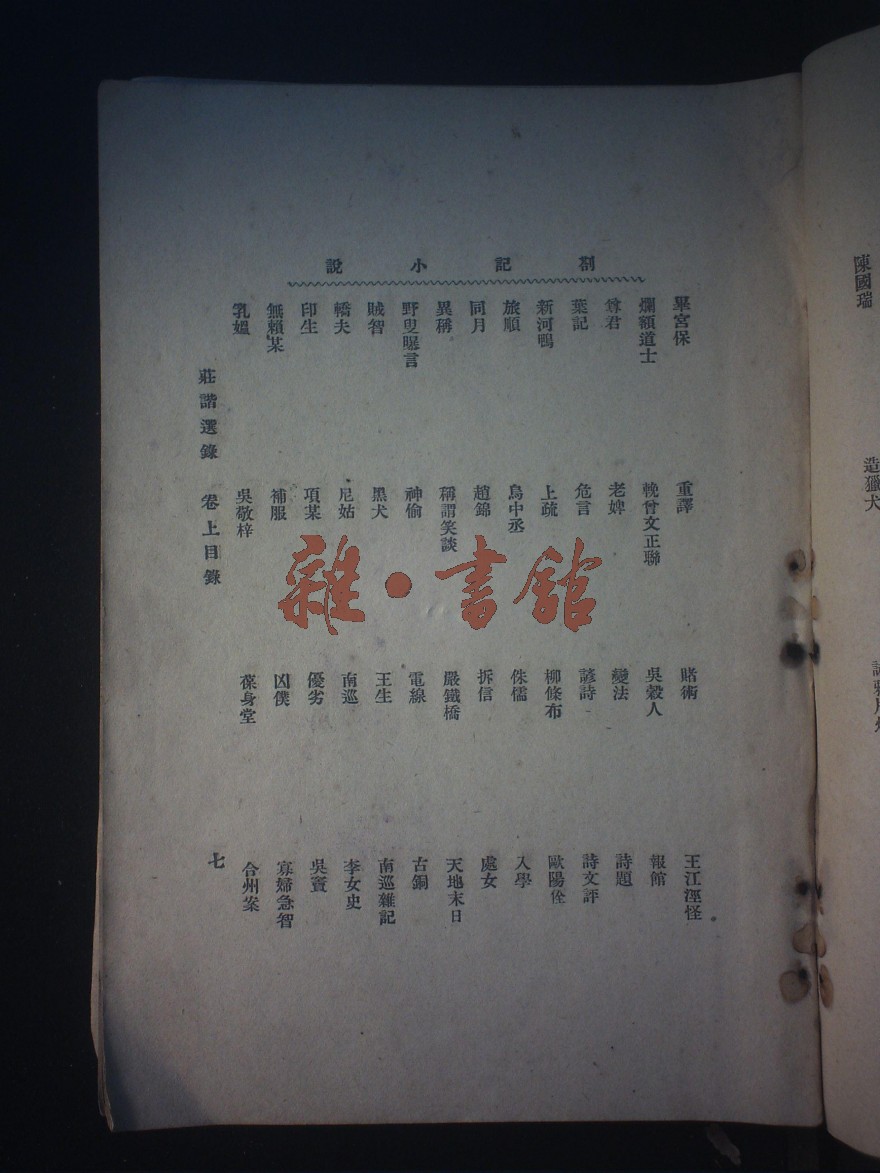 說 小 記 劄
畢宮保 重譯 賭術 王江涇怪
爛額道士 輓曾文正聯 吳穀人 報館
尊君 老婢 變法 詩題
葉記 危言 諺詩 詩文評
新河鴨 上疏 柳條布 歐陽侄
旅順 烏中丞 侏儒 入學
同月 趙錦 拆信 處女
異稱 稱謂笑談 嚴鐵橋 天地末日
野叟曝言 神偷 電線 古銅
賊智 黑犬 王生 南巡雜記
轎夫 尼姑 南巡 李女史
印生 項某 優劣 吳賓
無賴某 補服 凶僕 寡婦急智
乳媼 吳敬梓 葆身堂 合州案
莊諧選錄 卷上目錄 七
雜·書館
陳國瑞 造獵犬